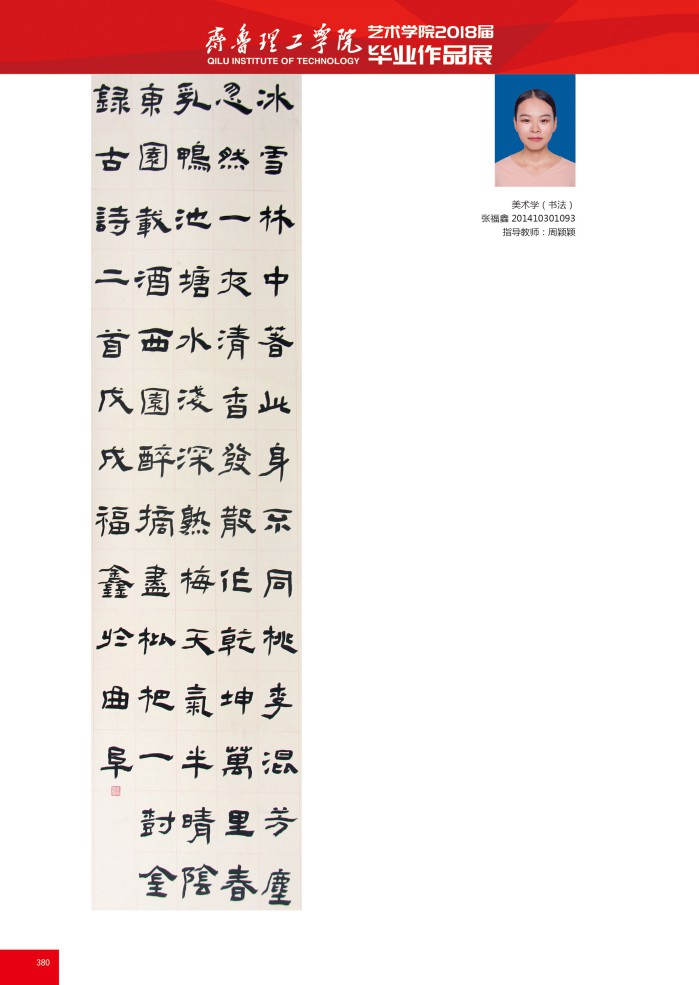 齊魯理工學院
QILU INSTITUTE OF TECHNOLOGY
艺术学院2018届
毕业作品展
冰雪林中著此身不同桃李混芳塵
忽然一夜清香發散作乾坤萬里春
乳鴨池塘水淺深熟梅天氣半晴陰
東園載酒西園醉摘盡枇杷一尌金
録古詩二首戊戌福鑫於曲阜
美术学（书法）
张福鑫 201410301093
指导教师：周颖颖
380